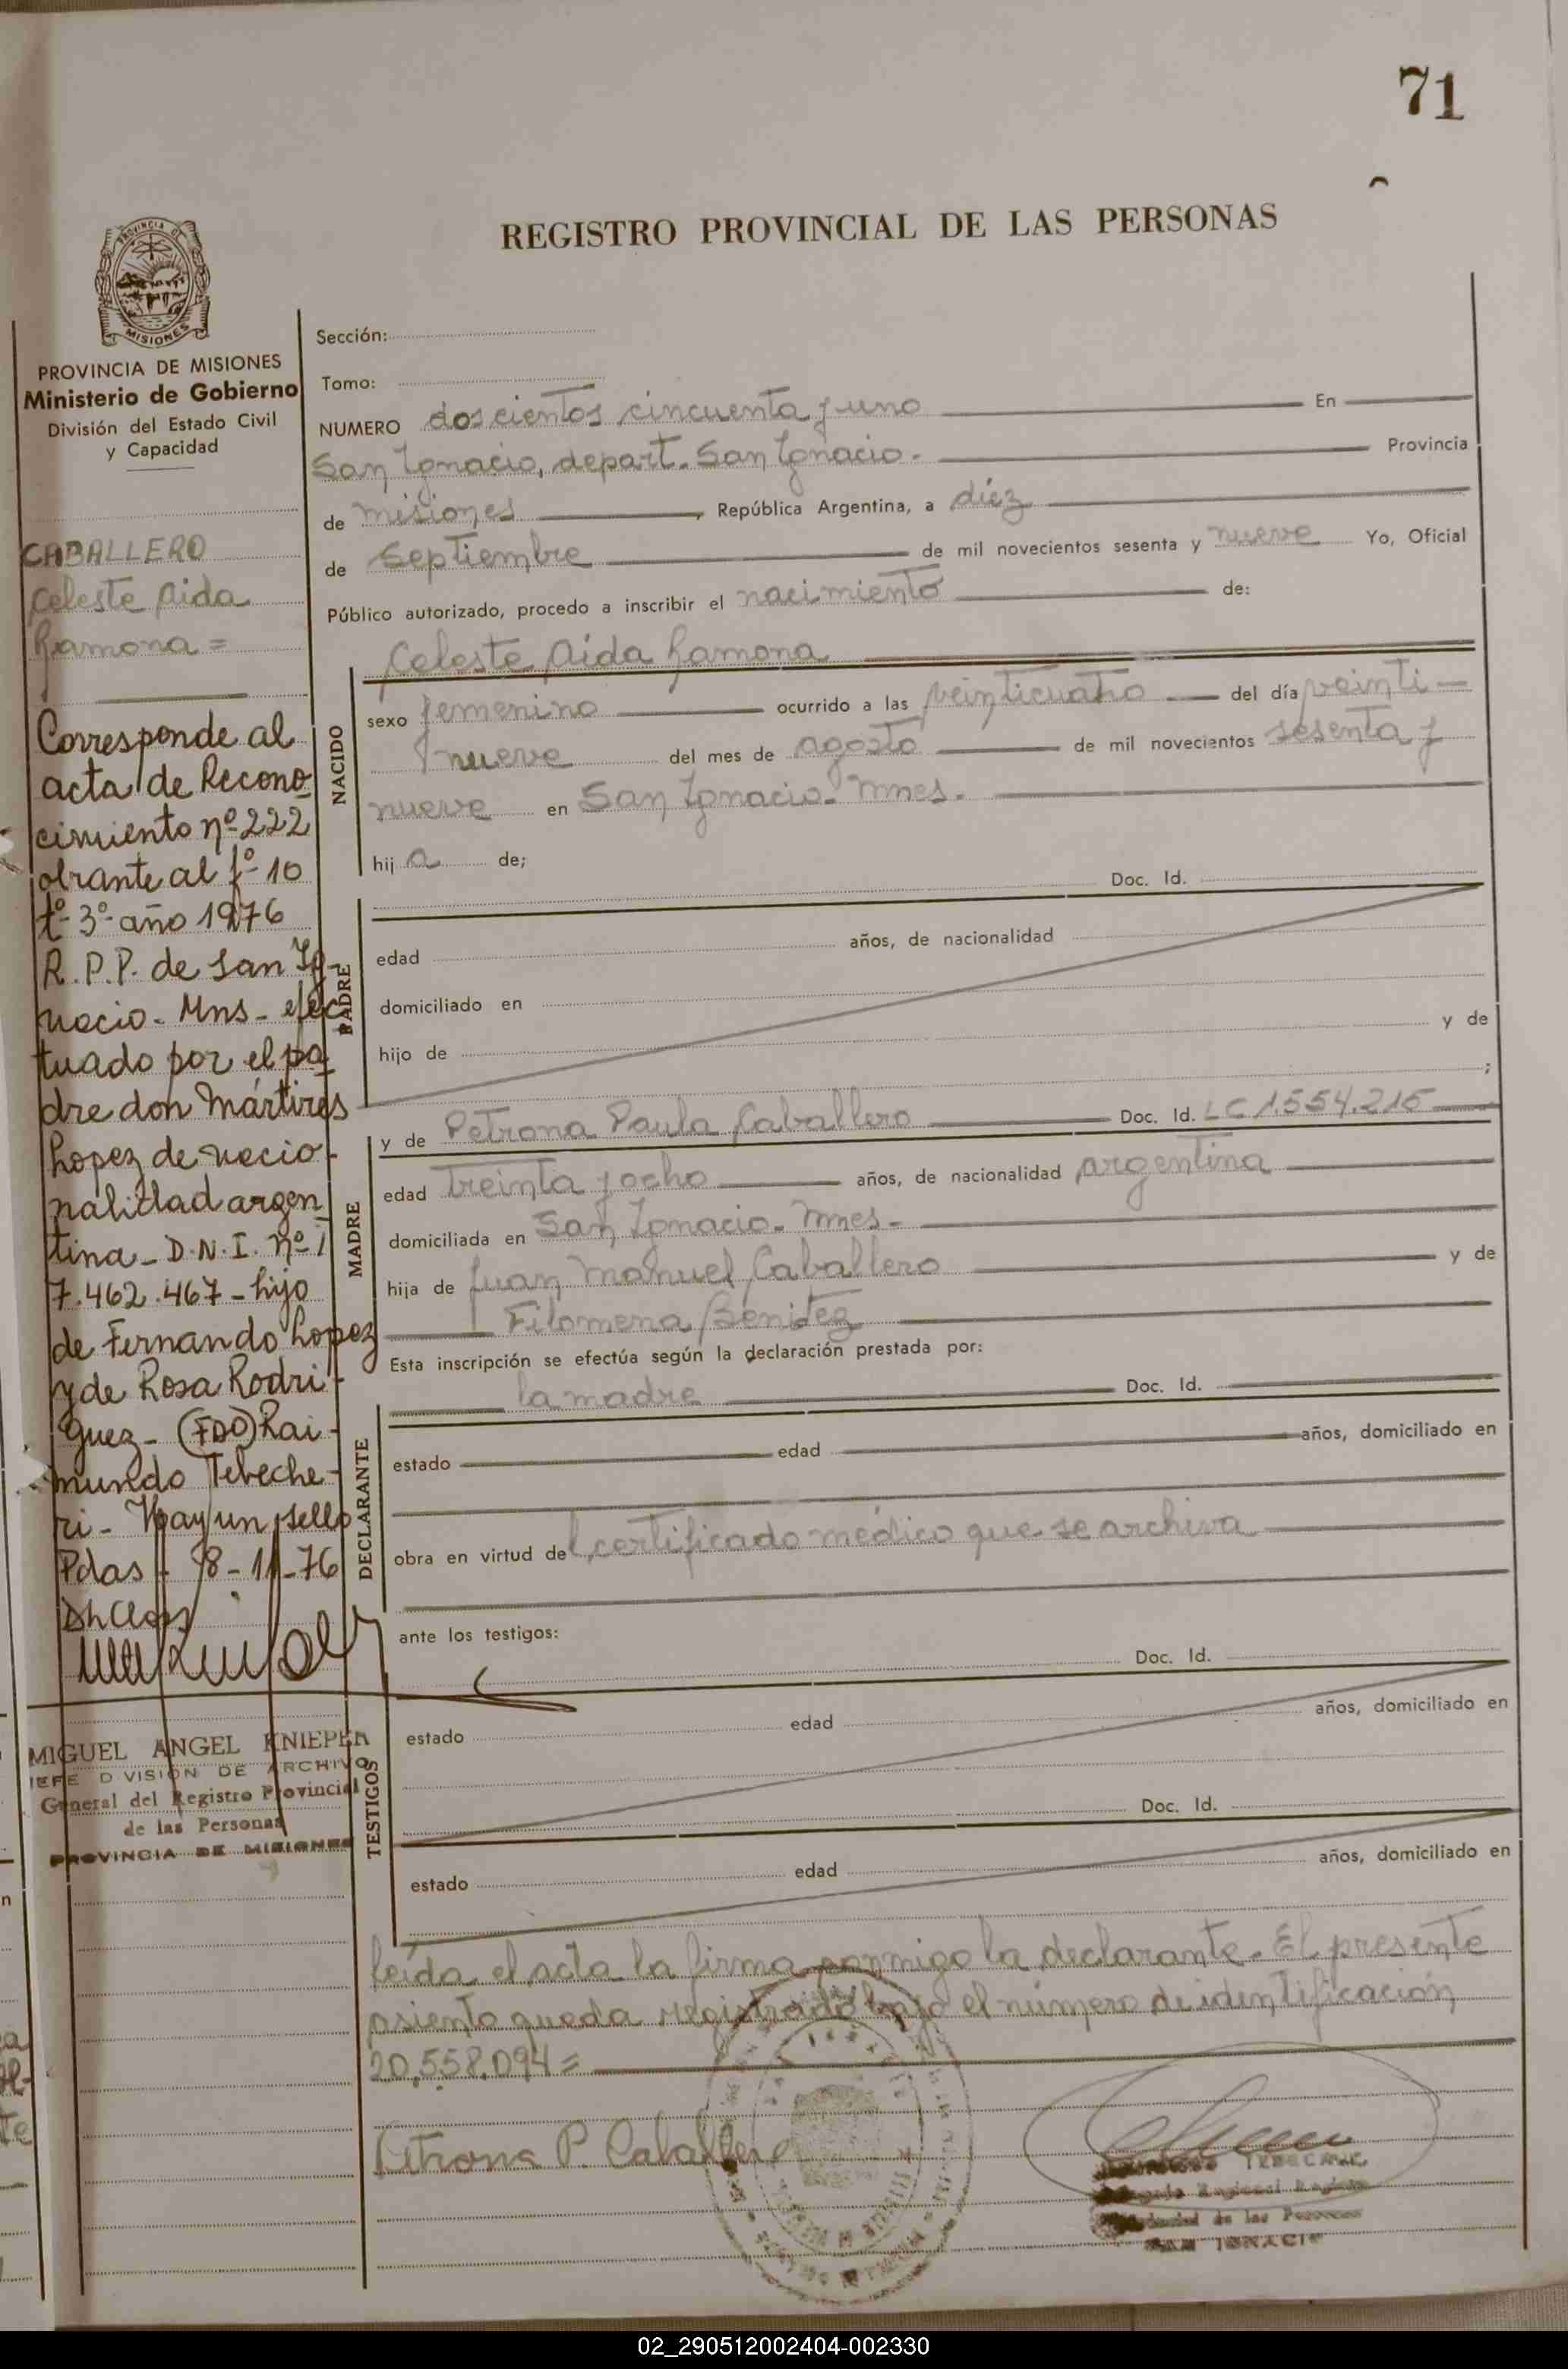 71
REGISTRO PROVINCIAL DE LAS PERSONAS
PROVINCIA DE
MISIONES
PROVINCIA DE MISIONES
Ministerio de Gobierno
División del Estado Civil
y Capacidad
CABALLERO
Celeste Aida
Ramona =
Corresponde al
acta de Recono-
cimiento nº 222
obrante al fº 10
tº 3º año 1976
R.P.P. de San Ig-
nacio - Mns - efec
tuado por el pa-
dre don Mártires
Lopez de nacio-
nalidad argen-
tina - D.N.I. nº
7.462.467 - hijo
de Fernando Lopez
y de Rosa Rodri-
guez - (FDO) Rai-
mundo Tebeche-
ri - Hay un sello
Pdas - 8-11-76
MIGUEL ANGEL KNIEPER
JEFE DIVISION DE ARCHIVO
General del Registro Provincial
de las Personas
PROVINCIA DE MISIONES
Sección:
Tomo:
NUMERO doscientos cincuenta y uno En
San Ignacio, depart. San Ignacio. Provincia
de misiones, República Argentina, a diéz
de septiembre de mil novecientos sesenta y nueve Yo, Oficial
Público autorizado, procedo a inscribir el nacimiento de:
NACIDO
Celeste Aida Ramona
sexo femenino ocurrido a las veinticuatro del día veinti-
nueve del mes de agosto de mil novecientos sesenta y
nueve en San Ignacio. Mnes.
hij a de;
PADRE
Doc. Id.
edad años, de nacionalidad
domiciliado en
hijo de y de
;
MADRE
y de Petrona Paula Caballero Doc. Id. LC 1.554.215
edad treinta y ocho años, de nacionalidad argentina
domiciliada en San Ignacio. Mnes.
hija de Juan Manuel Caballero y de
Filomena Benitez
Esta inscripción se efectúa según la declaración prestada por:
DECLARANTE
la madre Doc. Id.
estado edad años, domiciliado en
obra en virtud del certificado médico que se archiva
ante los testigos:
TESTIGOS
Doc. Id.
estado edad años, domiciliado en
Doc. Id.
estado edad años, domiciliado en
leída el acta la firma conmigo la declarante. El presente
asiento queda registrado bajo el número de identificación
20,558,094=
Petrona P. Caballero
de las Personas
SAN IGNACIO
02_290512002404-002330